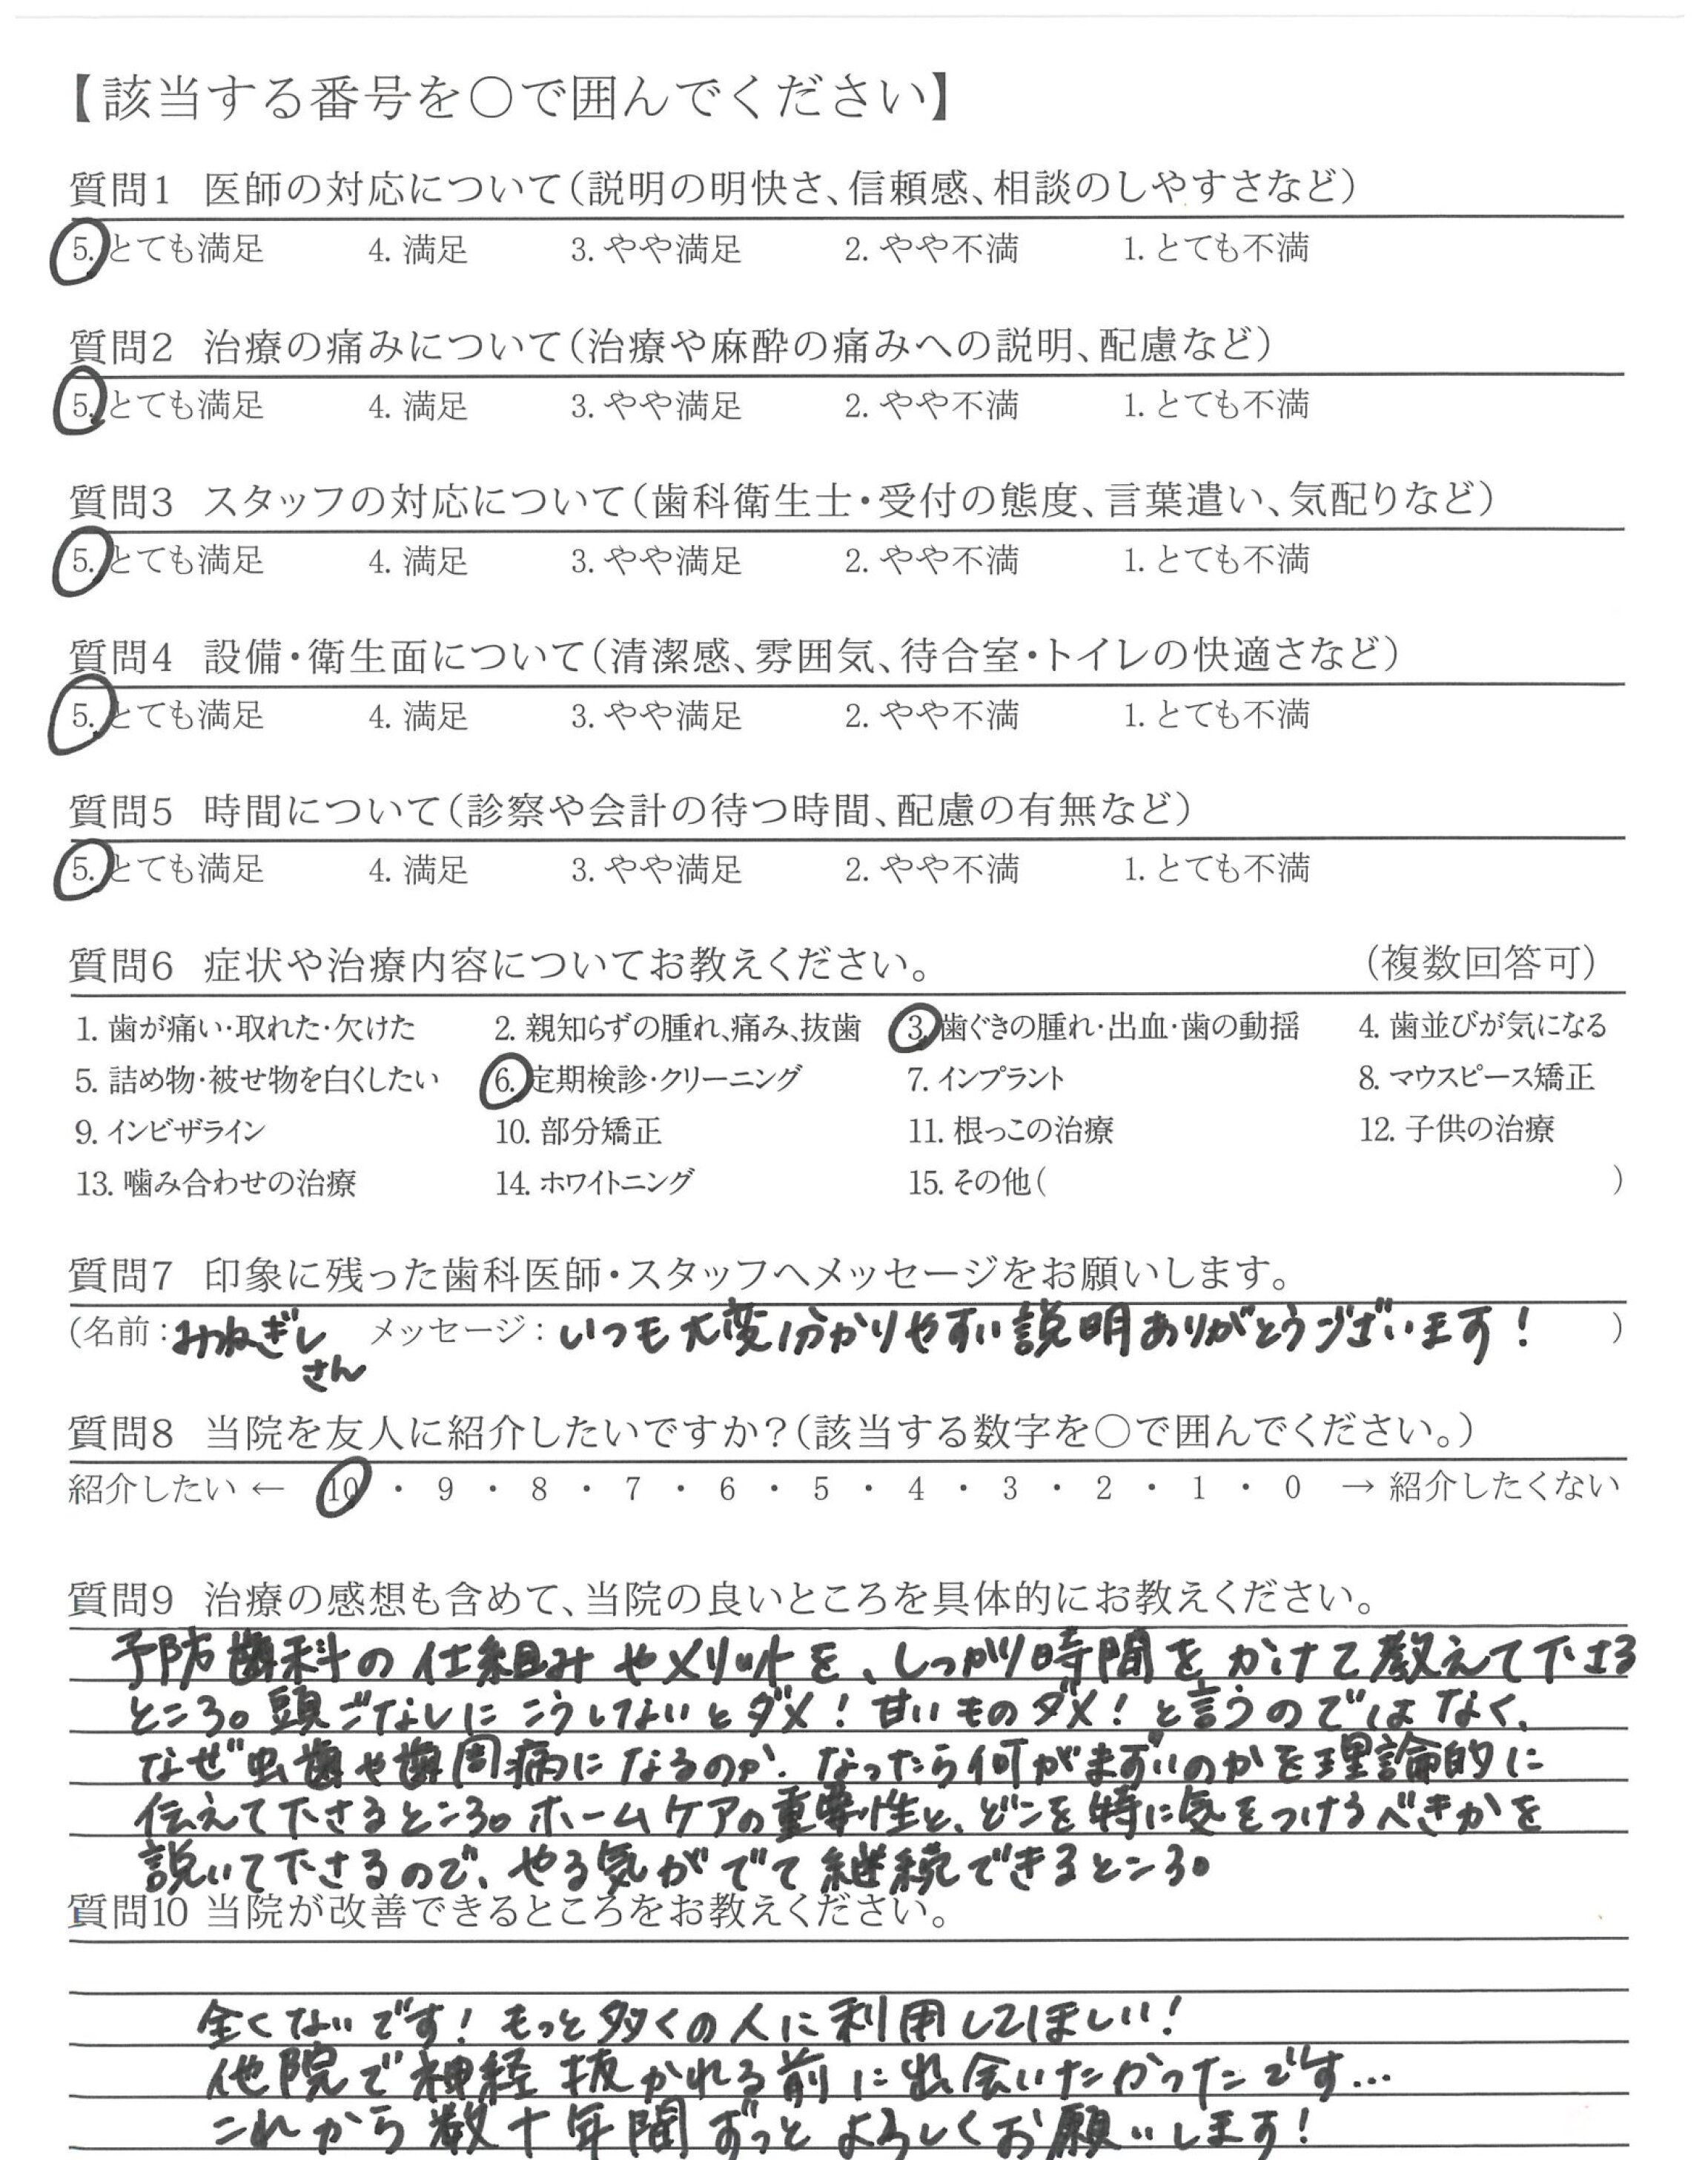 【該当する番号を○で囲んでください】
質問1 医師の対応について(説明の明快さ、信頼感、相談のしやすさなど)
5. とても満足 4. 満足 3. やや満足 2. やや不満 1. とても不満
質問2 治療の痛みについて(治療や麻酔の痛みへの説明、配慮など)
5. とても満足 4. 満足 3. やや満足 2. やや不満 1. とても不満
質問3 スタッフの対応について(歯科衛生士・受付の態度、言葉遣い、気配りなど)
5. とても満足 4. 満足 3. やや満足 2. やや不満 1. とても不満
質問4 設備・衛生面について(清潔感、雰囲気、待合室・トイレの快適さなど)
5. とても満足 4. 満足 3. やや満足 2. やや不満 1. とても不満
質問5 時間について(診察や会計の待つ時間、配慮の有無など)
5. とても満足 4. 満足 3. やや満足 2. やや不満 1. とても不満
質問6 症状や治療内容についてお教えください。 (複数回答可)
1. 歯が痛い・取れた・欠けた 2. 親知らずの腫れ、痛み、抜歯 3. 歯ぐきの腫れ・出血・歯の動揺 4. 歯並びが気になる
5. 詰め物・被せ物を白くしたい 6. 定期検診・クリーニング 7. インプラント 8. マウスピース矯正
9. インビザライン 10. 部分矯正 11. 根っこの治療 12. 子供の治療
13. 噛み合わせの治療 14. ホワイトニング 15. その他( )
質問7 印象に残った歯科医師・スタッフへメッセージをお願いします。
(名前：みねぎし メッセージ：いつも大変分かりやすい説明ありがとうございます! )
さん
質問8 当院を友人に紹介したいですか?(該当する数字を○で囲んでください。)
紹介したい ← 10 ・ 9 ・ 8 ・ 7 ・ 6 ・ 5 ・ 4 ・ 3 ・ 2 ・ 1 ・ 0 → 紹介したくない
質問9 治療の感想も含めて、当院の良いところを具体的にお教えください。
予防歯科の仕組みやメリットを、しっかり時間をかけて教えて下さる
ところ。頭ごなしにこうしないとダメ!甘いものダメ!と言うのではなく、
なぜ虫歯や歯周病になるのか、なったら何がまずいのかを理論的に
伝えて下さるところ。ホームケアの重要性と、どこを特に気をつけるべきかを
説いて下さるので、やる気がでて継続できるところ。
質問10 当院が改善できるところをお教えください。
全くないです!もっと多くの人に利用してほしい!
他院で神経抜かれる前に出会いたかったです…
これから数十年間ずっとよろしくお願いします!